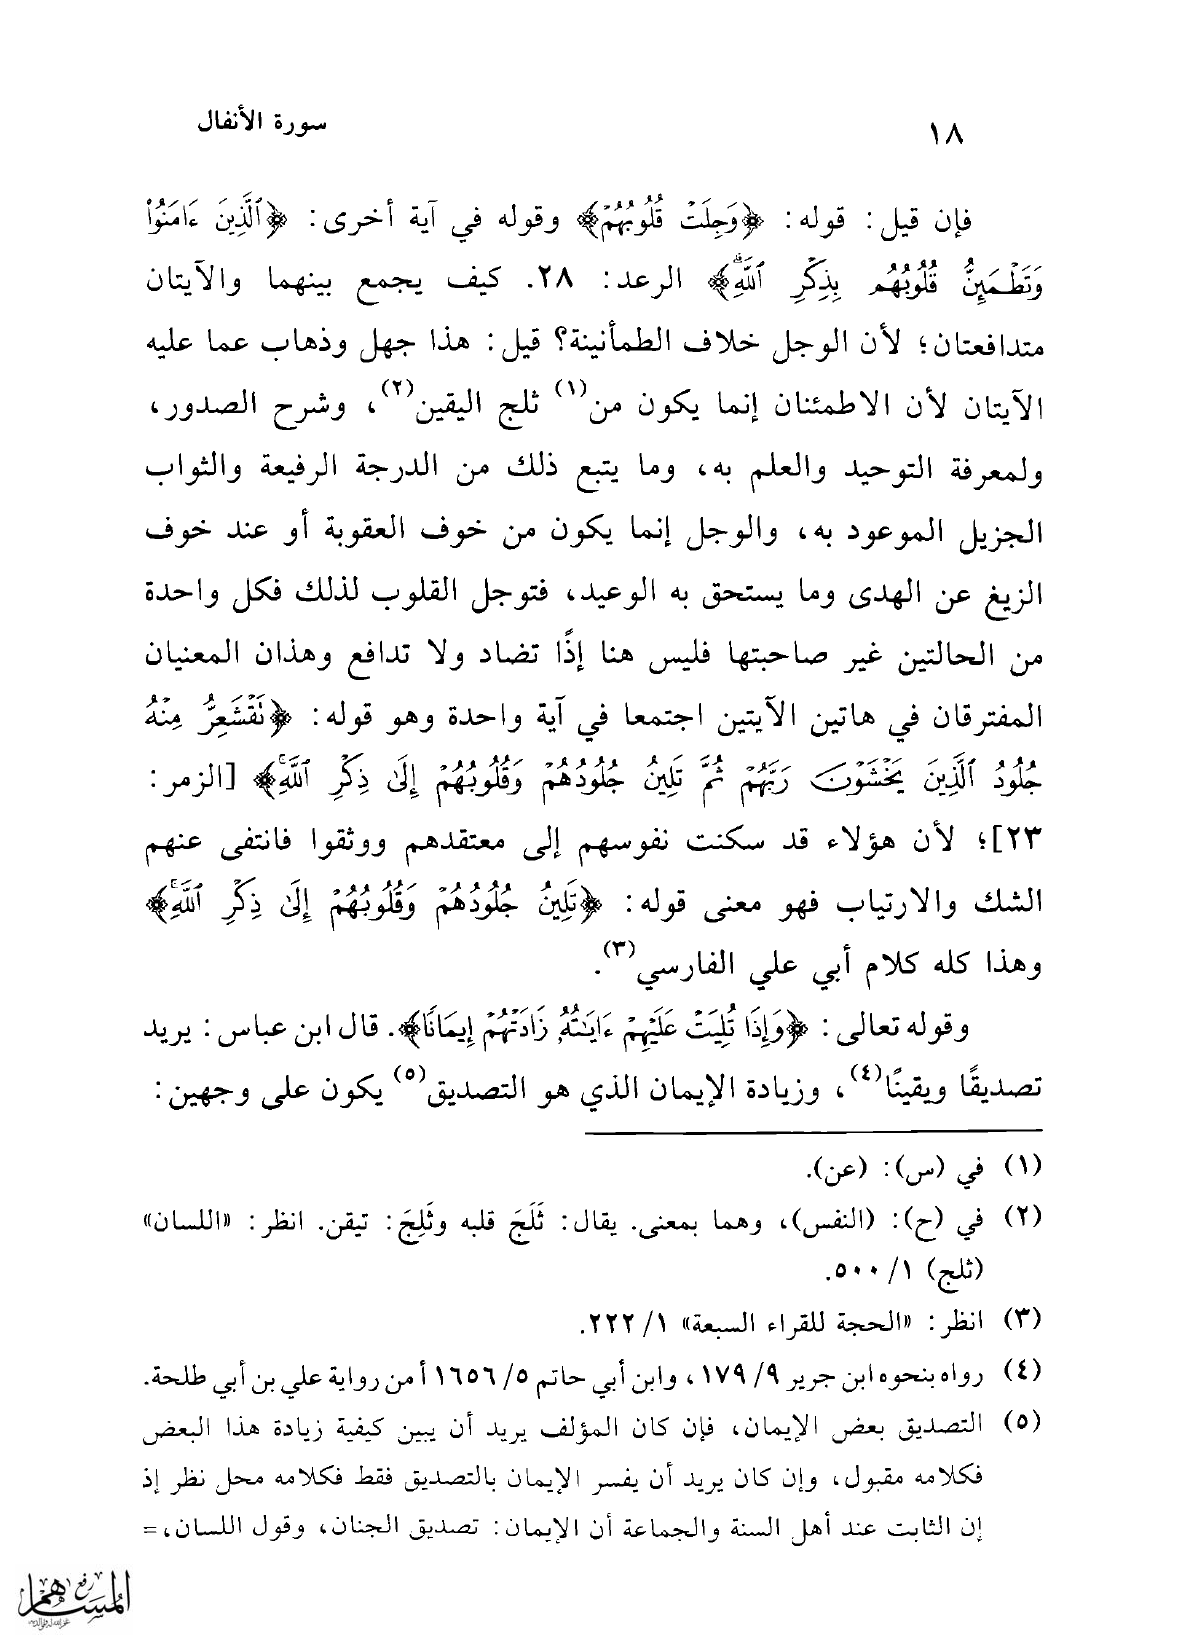 ١٨ سورة الأنفال
فإن قيل: قوله: ﴿وَجِلَتْ قُلُوبُهُمْ﴾ وقوله في آية أخرى: ﴿ٱلَّذِينَ ءَامَنُوا۟
وَتَطْمَئِنُّ قُلُوبُهُم بِذِكْرِ ٱللَّهِ﴾ الرعد: ٢٨. كيف يجمع بينهما والآيتان
متدافعتان؛ لأن الوجل خلاف الطمأنينة؟ قيل: هذا جهل وذهاب عما عليه
الآيتان لأن الاطمئنان إنما يكون من(١) ثلج اليقين(٢)، وشرح الصدور،
ولمعرفة التوحيد والعلم به، وما يتبع ذلك من الدرجة الرفيعة والثواب
الجزيل الموعود به، والوجل إنما يكون من خوف العقوبة أو عند خوف
الزيغ عن الهدى وما يستحق به الوعيد، فتوجل القلوب لذلك فكل واحدة
من الحالتين غير صاحبتها فليس هنا إذًا تضاد ولا تدافع وهذان المعنيان
المفترقان في هاتين الآيتين اجتمعا في آية واحدة وهو قوله: ﴿نَقْشَعِرُّ مِنْهُ
جُلُودُ ٱلَّذِينَ يَخْشَوْنَ رَبَّهُمْ ثُمَّ تَلِينُ جُلُودُهُمْ وَقُلُوبُهُمْ إِلَىٰ ذِكْرِ ٱللَّهِ﴾ [الزمر:
٢٣]؛ لأن هؤلاء قد سكنت نفوسهم إلى معتقدهم ووثقوا فانتفى عنهم
الشك والارتياب فهو معنى قوله: ﴿تَلِينُ جُلُودُهُمْ وَقُلُوبُهُمْ إِلَىٰ ذِكْرِ ٱللَّهِ﴾
وهذا كله كلام أبي علي الفارسي(٣).
وقوله تعالى: ﴿وَإِذَا تُلِيَتْ عَلَيْهِمْ ءَايَٰتُهُۥ زَادَتْهُمْ إِيمَانًا﴾. قال ابن عباس: يريد
تصديقًا ويقينًا(٤)، وزيادة الإيمان الذي هو التصديق(٥) يكون على وجهين:
(١) في (س): (عن).
(٢) في (ح): (النفس)، وهما بمعنى. يقال: ثَلَجَ قلبه وثَلِجَ: تيقن. انظر: «اللسان»
(ثلج) ١/ ٥٠٠.
(٣) انظر: «الحجة للقراء السبعة» ١/ ٢٢٢.
(٤) رواه بنحوه ابن جرير ٩/ ١٧٩، وابن أبي حاتم ٥/ ١٦٥٦ أ من رواية علي بن أبي طلحة.
(٥) التصديق بعض الإيمان، فإن كان المؤلف يريد أن يبين كيفية زيادة هذا البعض
فكلامه مقبول، وإن كان يريد أن يفسر الإيمان بالتصديق فقط فكلامه محل نظر إذ
إن الثابت عند أهل السنة والجماعة أن الإيمان: تصديق الجنان، وقول اللسان، =
رفع
المساهم